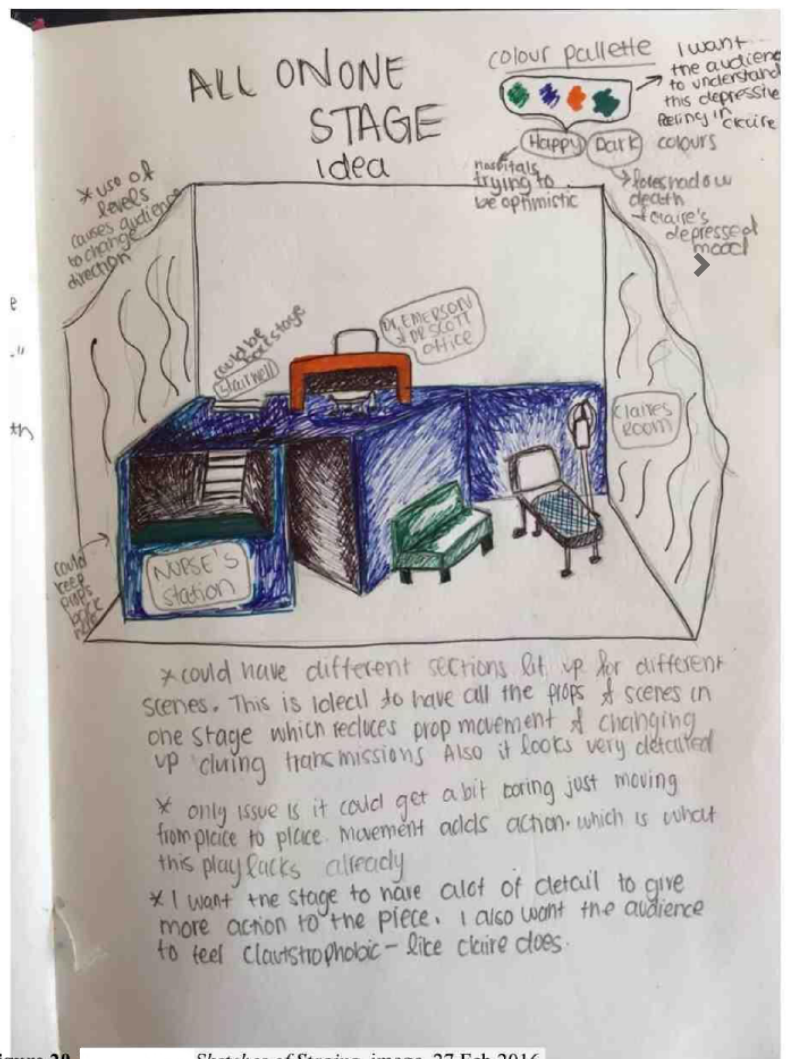 ALL ON ONE
STAGE
idea
colour pallette
I want
the audience
to understand
this depressive
feeling in
claire
Happy Dark colours
hospitals
trying to
be optimistic
foreshadow
death
+ claire's
depressed
mood
* use of
levels
causes audience
to change
direction
e
."
th
could be
backstage
Stairwell
Dr. EMERSON
& DR SCOTT
office
Claires
Room
could
keep
props
back
here
NURSE'S
Station
* could have different sections lit up for different
scenes. This is ideal to have all the props & scenes in
one stage which reduces prop movement & changing
up during transmissions Also it looks very detailed
* only issue is it could get a bit boring just moving
from place to place. movement adds action. which is what
this play lacks already
* I want the stage to have alot of detail to give
more action to the piece. I also want the audience
to feel clautstrophobic - like claire does.
Figure 20 Sketches of Staging, image, 27 Feb 2016